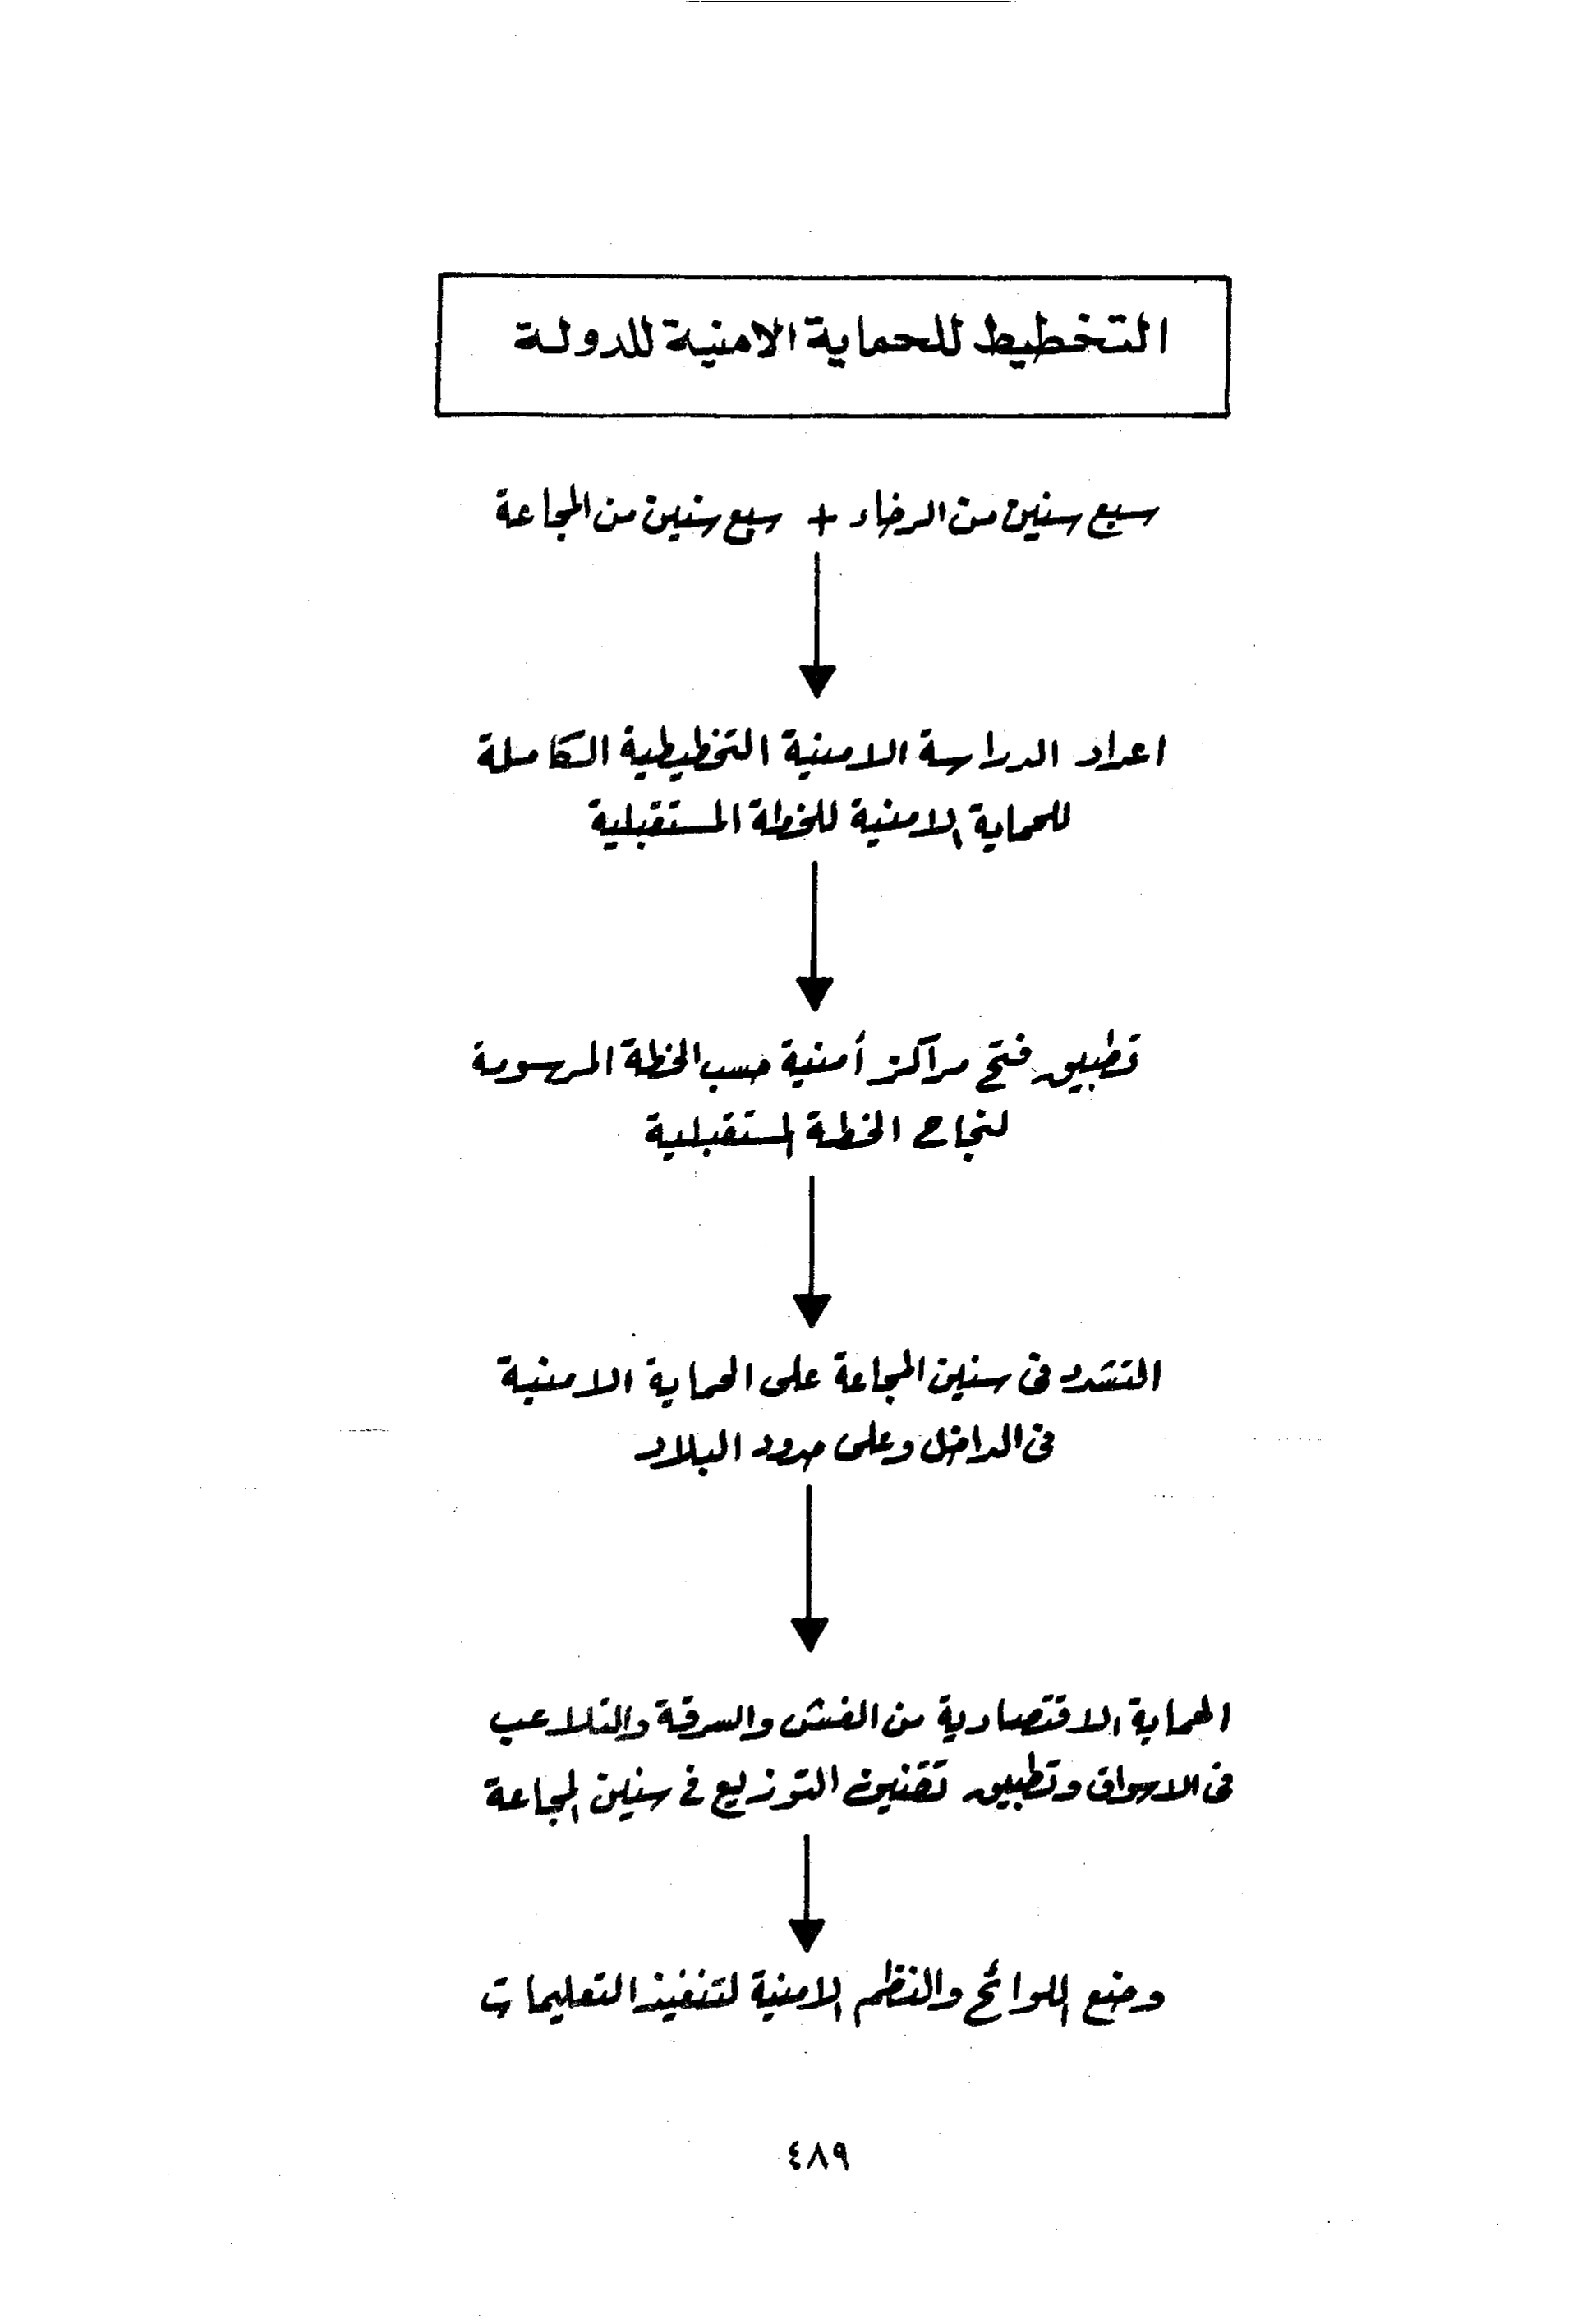 التخطيط للحماية الامنية للدولة
سبع سنين من الرخاء + سبع سنين من المجاعة
اعداد الدراسة الامنية التخطيطية الكاملة
للحماية الامنية للخطة المستقبلية
تطبيق فتح مراكز أمنية حسب الخطة المرسومة
لنجاح الخطة المستقبلية
التشدد فى سنين المجاعة على الحماية الامنية
فى الداخل وعلى حدود البلاد
الحماية الاقتصادية من الغش والسرقة والتلاعب
فى الاسواق وتطبيق تقنين التوزيع فى سنين المجاعة
وضع اللوائح والنظم الامنية لتنفيذ التعليمات
٤٨٩